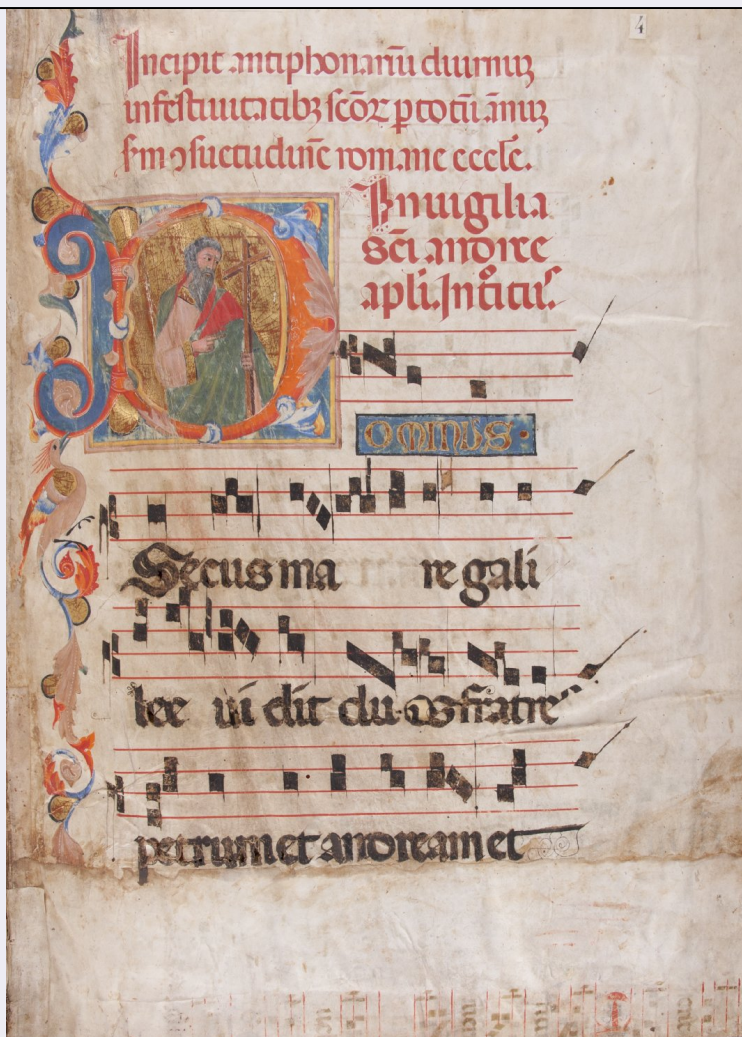 4
Incipit antiphonariū diurnuꝫ
in festiuitatibꝫ scōꝝ p totū ānuꝫ
sm ɔsuetudinē romane eccle.
In uigilia
sci andree
apli. Introitus.
DOMINUS.
Secus ma re gali
lee ui dit du os fratres
petrum et andream et